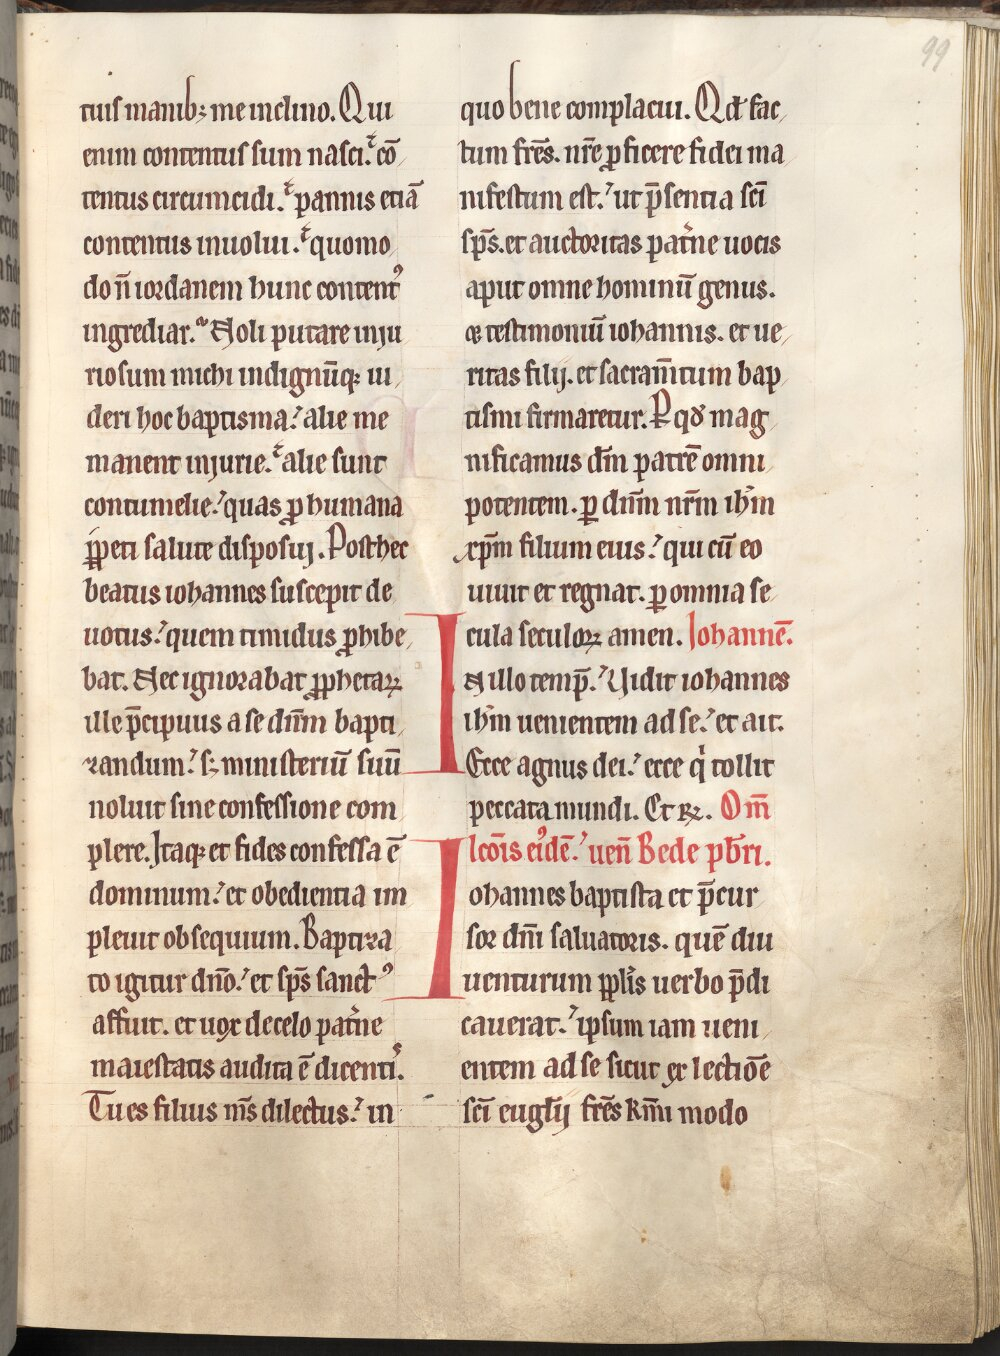 99
tuis manib; me inclino. Qui
enim contentus sum nasci. cō
tentus circumcidi. pannis etiā
contentus inuolui. quomo
do n̄ iordanem hunc content᷒
ingrediar. Noli putare inju
riosum michi indignūq; ui
deri hoc baptisma. alie me
manent injurie. alie sunt
contumelie. quas ꝓ humana
ꝑpeti salute disposuj. Posthec
beatus iohannes suscepit de
uotus. quem timidus ꝓhibe
bat. Nec ignorabat ꝓphetaꝝ
ille p̄cipuus a se dn̄m bapti
zandum. sꝫ ministeriū suū
noluit sine confessione com
plere. Itaq; et fides confessa ē
dominum. et obedientia im
pleuit obsequium. Baptiza
to igitur dn̄o. et sp̄s sanct᷒
affuit. et uox de celo pat͛ne
maiestatis audita ē dicenti᷒.
Tu es filius m̄s dilectus. in
quo bene complacui. Qđ fac
tum fr̄es. nr̄e ꝓficere fidei ma
nifestum est. ut p̄sentia sc̄i
sp̄s. et auctoritas pat͛ne uocis
aput omne hominū genus.
et testimoniū iohannis. et ue
ritas filij. et sacram̄tum bap
tismi firmaretur. P qđ mag
nificamus dm̄ patrē omni
potentem. ꝑ dn̄m nr̄m ih̄m
xp̄m filium eius. qui cū eo
uiuit et regnat. ꝑ omnia se
cula seculoꝝ amen. Iohannē.
I
N illo temp̄. Uidit iohannes
ih̄m uenientem ad se. et ait.
Ecce agnus dei. ecce qͥ tollit
peccata mundi. Et ꝶ. Om̄
lcōis ei᷒dē. uen̄ Bede pb̄ri.
I
ohannes baptista et p̄cur
sor dn̄i saluatoris. quē diu
uenturum ppl̄is uerbo p̄di
cauerat. ipsum iam ueni
entem ad se sicut ex lectiōe
sc̄i eugl̄ij fr̄es km̄i modo